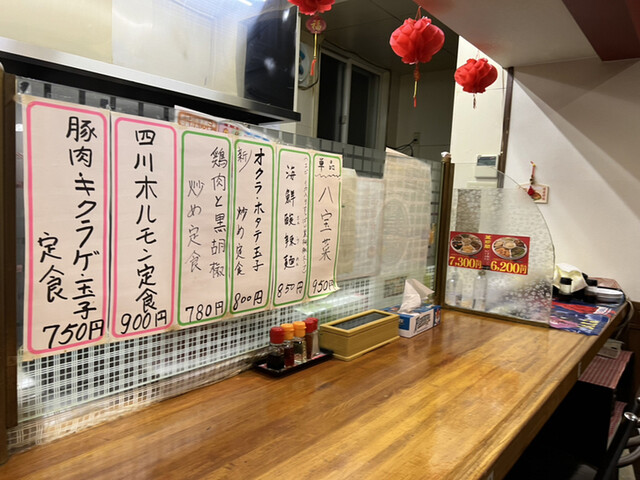 豚肉・キクラゲ・玉子
定食
750円
四川ホルモン定食
900円
鶏肉と黒胡椒
炒め定食
780円
新
オクラ・ホタテ玉子
炒め定食
800円
海鮮酸辣麺
850円
単品
八宝菜
950円
7,300円
6,200円